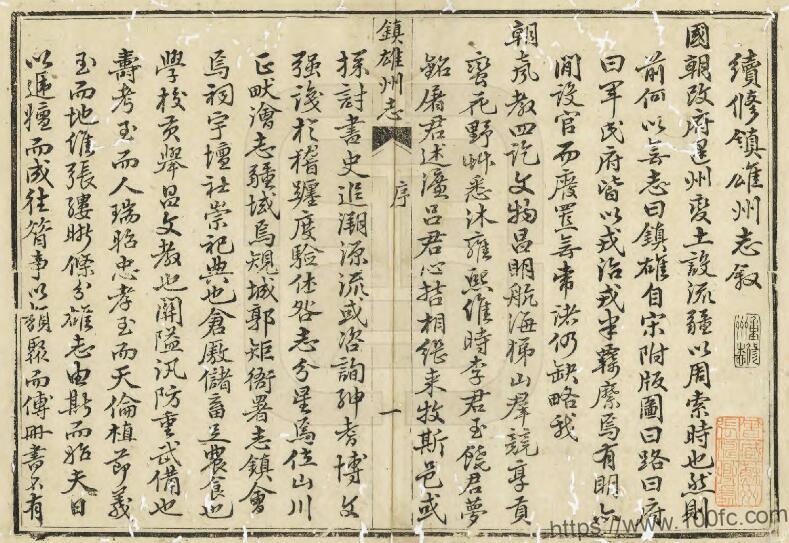 續修鎮雄州志敘
國朝改府還州變土設流疆以周索時也然則
前何以無志曰鎮雄自宋附版圖曰路曰府
曰軍民府皆以戎治戎半羈縻焉有明
開設官而廢置無常諸仍缺略我
朝聲教四訖文物昌明航海梯山羣競享貢
蠻花野艸悉沐雍熙維時李君至饒君夢
銘屠君述濂呂君心哲相繼來牧斯邑或
鎮雄州志
序
一
探討書史追溯源流或咨詢紳耆博文
强識於稽躔度驗休咎志分星焉位山川
正畎澮志疆域焉規城郭矩衙署志鎮會
焉祠宇壇社崇祀典也倉廒儲畜足農食也
學校貢舉昌文教也關隘汛防重武備也
壽考至而人瑞昭忠孝至而天倫植節義
至而地維張縷晰條分雄志由斯而昉夫日
以遞嬗而成往事以類聚而傳冊書不有
https://www.100fc.com